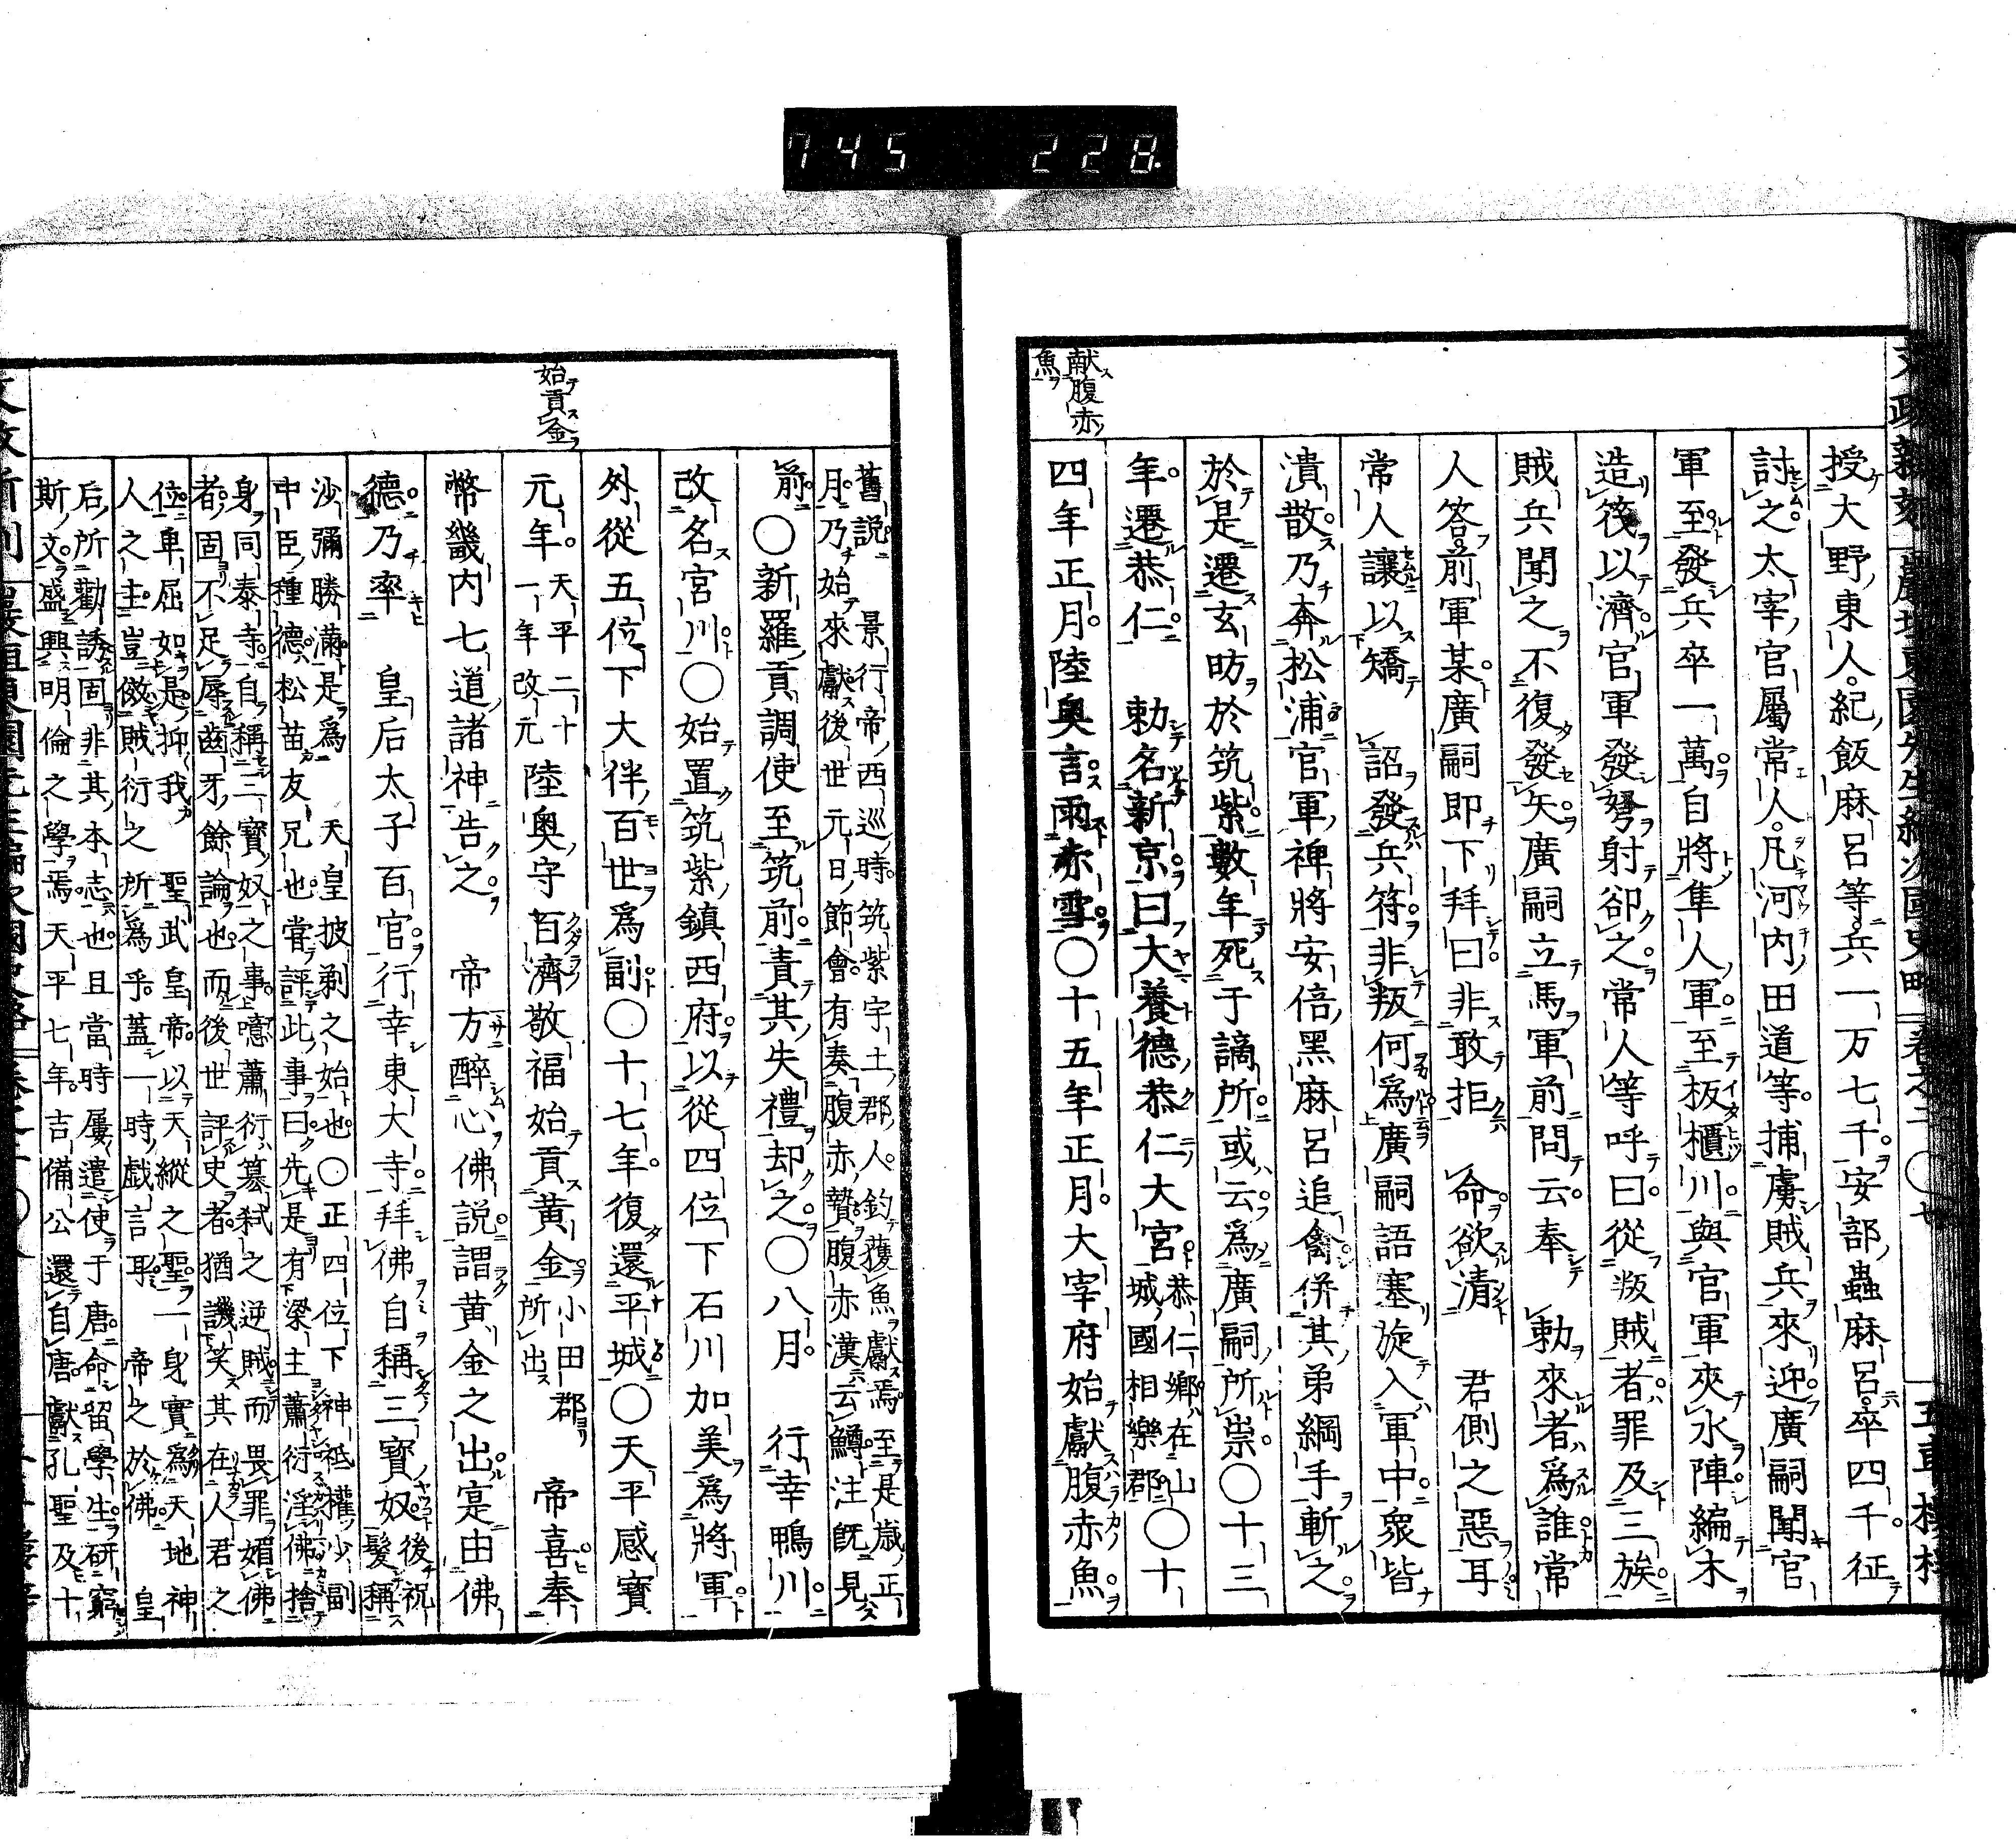 745 228
授大野東人紀飯麻呂等兵一万七千安部蟲麻呂卒四千征
討之太宰官屬常人凡河内田道等捕虜賊兵來迎廣嗣聞官
軍至發兵卒一萬自將隼人軍至板櫃川與官軍夾水陣編木
造筏以濟官軍發弩射卻之常人等呼曰從叛賊者罪及三族
賊兵聞之不復發矢廣嗣立馬軍前問云奉 勅來者爲誰常
人答前軍某廣嗣即下拜曰非敢拒 命欲清 君側之惡耳
常人讓以矯 詔發兵符非叛何爲廣嗣語塞旋入軍中衆皆
潰散乃奔松浦官軍裨將安倍黑麻呂追禽併其弟綱手斬之
於是遷玄昉於筑紫數年死于謫所或云爲廣嗣所祟〇十三
年遷恭仁 勅名新京曰大養德恭仁大宮恭仁鄉在山城國相樂郡〇十
獻腹赤魚
四年正月陸奥言雨赤雪〇十五年正月大宰府始獻腹赤魚
舊說 景行帝西巡時筑紫宇土郡人釣獲魚獻焉至是歲正
月乃始來獻後世元日節會有奏腹赤贄腹赤漢云鱒注既見
前〇新羅貢調使至筑前責其失禮却之〇八月 行幸鴨川
改名宮川〇始置筑紫鎮西府以從四位下石川加美爲將軍
外從五位下大伴百世爲副〇十七年復還平城〇天平感寶
始貢金
元年天平二十一年改元陸奥守百濟敬福始貢黃金小田郡所出 帝喜奉
幣畿内七道諸神告之 帝方醉心佛說謂黃金之出寔由佛
德乃率 皇后太子百官行幸東大寺拜佛自稱三寶奴後祝髮稱
沙彌勝滿是爲 天皇披剃之始也〇正四位下神祇權少副
中臣種德松苗友兄也嘗評此事曰先是有梁主蕭衍淫佛捨
身同泰寺自稱三寶奴之事噫蕭衍篡弒之逆賊而畏罪媚佛
者固不足辱齒牙餘論也而後世評史者猶譏笑其在人君之
位卑屈如是抑我 聖武皇帝以天縱之聖一身實爲天地神
人之主豈傚賊衍之所爲乎蓋一時戲言耳 帝之於佛 皇
后所勸誘固非其本志也且當時屢遣使于唐命留學生研窮
斯文盛興明倫之學焉天平七年吉備公還自唐獻孔聖及十